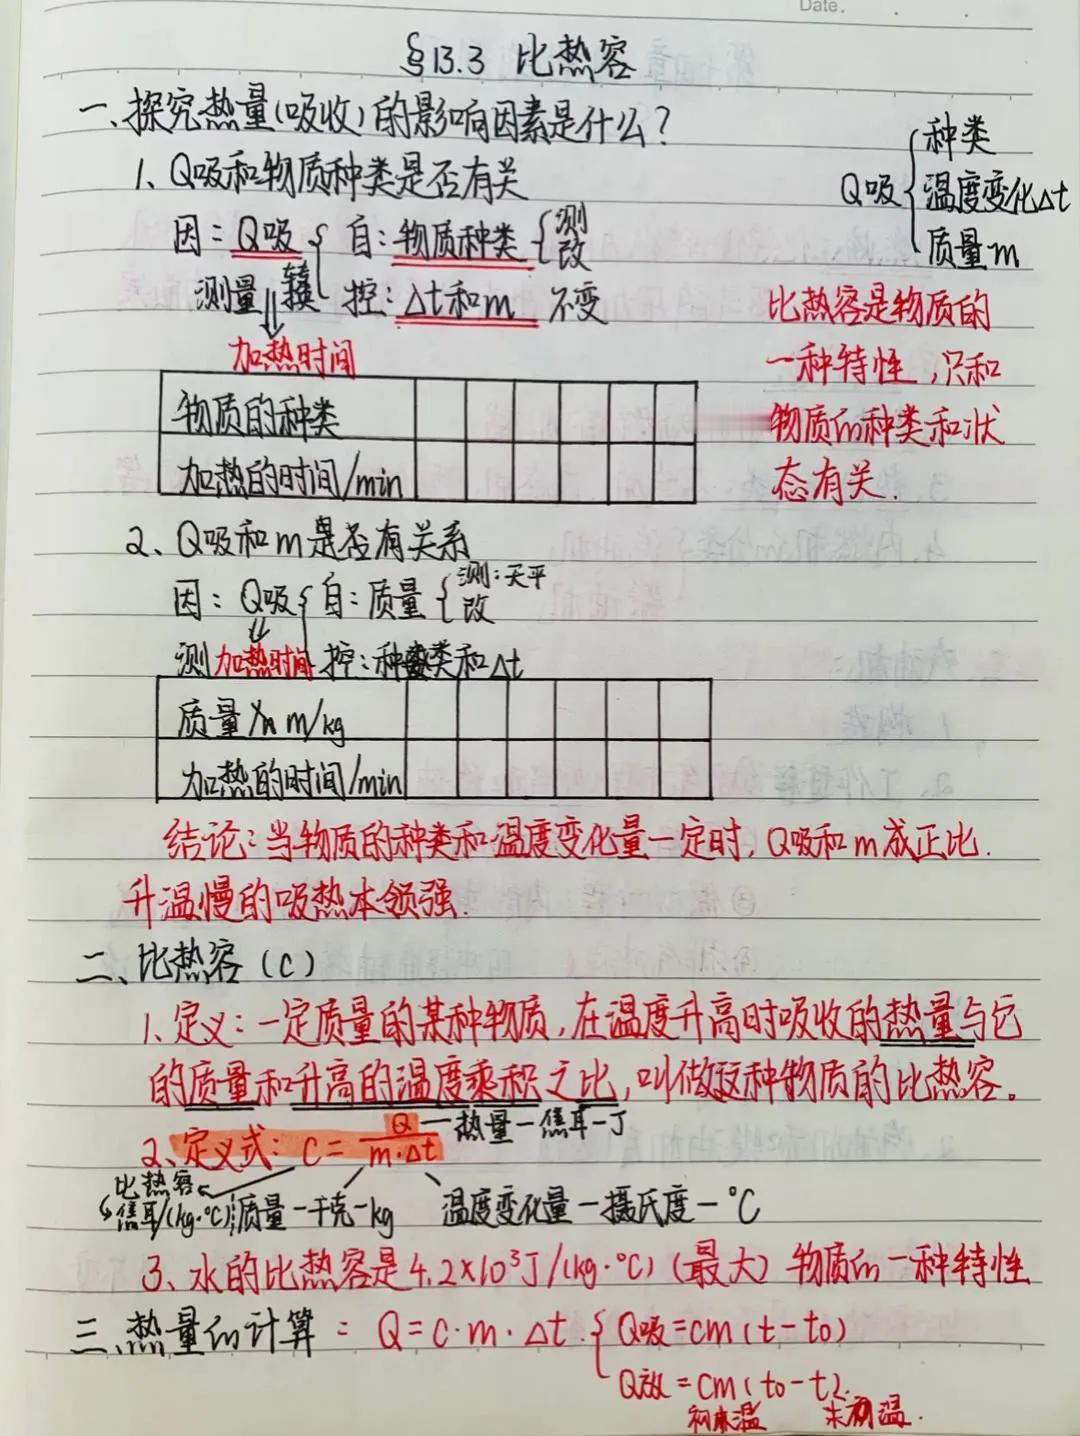 Date.
§13.3 比热容
一、探究热量(吸收)的影响因素是什么?
1、Q吸和物质种类是否有关
因:Q吸 { 自:物质种类 { 测 改
测量 转换 控:Δt和m 不变
加热时间
Q吸 { 种类
温度变化Δt
质量m
比热容是物质的
一种特性,只和
物质的种类和状
态有关.
物质的种类
加热的时间/min
2、Q吸和m是否有关系
因:Q吸 { 自:质量 { 测:天平 改
测加热时间 控:种类和Δt
质量 m/kg
加热的时间/min
结论:当物质的种类和温度变化量一定时,Q吸和m成正比.
升温慢的吸热本领强.
二、比热容(C)
1.定义:一定质量的某种物质,在温度升高时吸收的热量与它
的质量和升高的温度乘积之比,叫做这种物质的比热容。
2、定义式:C=Q/m·Δt —热量—焦耳—J
比热容
焦耳/(kg·℃) 质量—千克—kg 温度变化量—摄氏度—℃
3、水的比热容是4.2×10³J/(kg·℃)(最大) 物质的一种特性
三、热量的计算: Q=C·m·Δt. { Q吸=cm(t-t0)
Q放=cm(t0-t).
温 温.